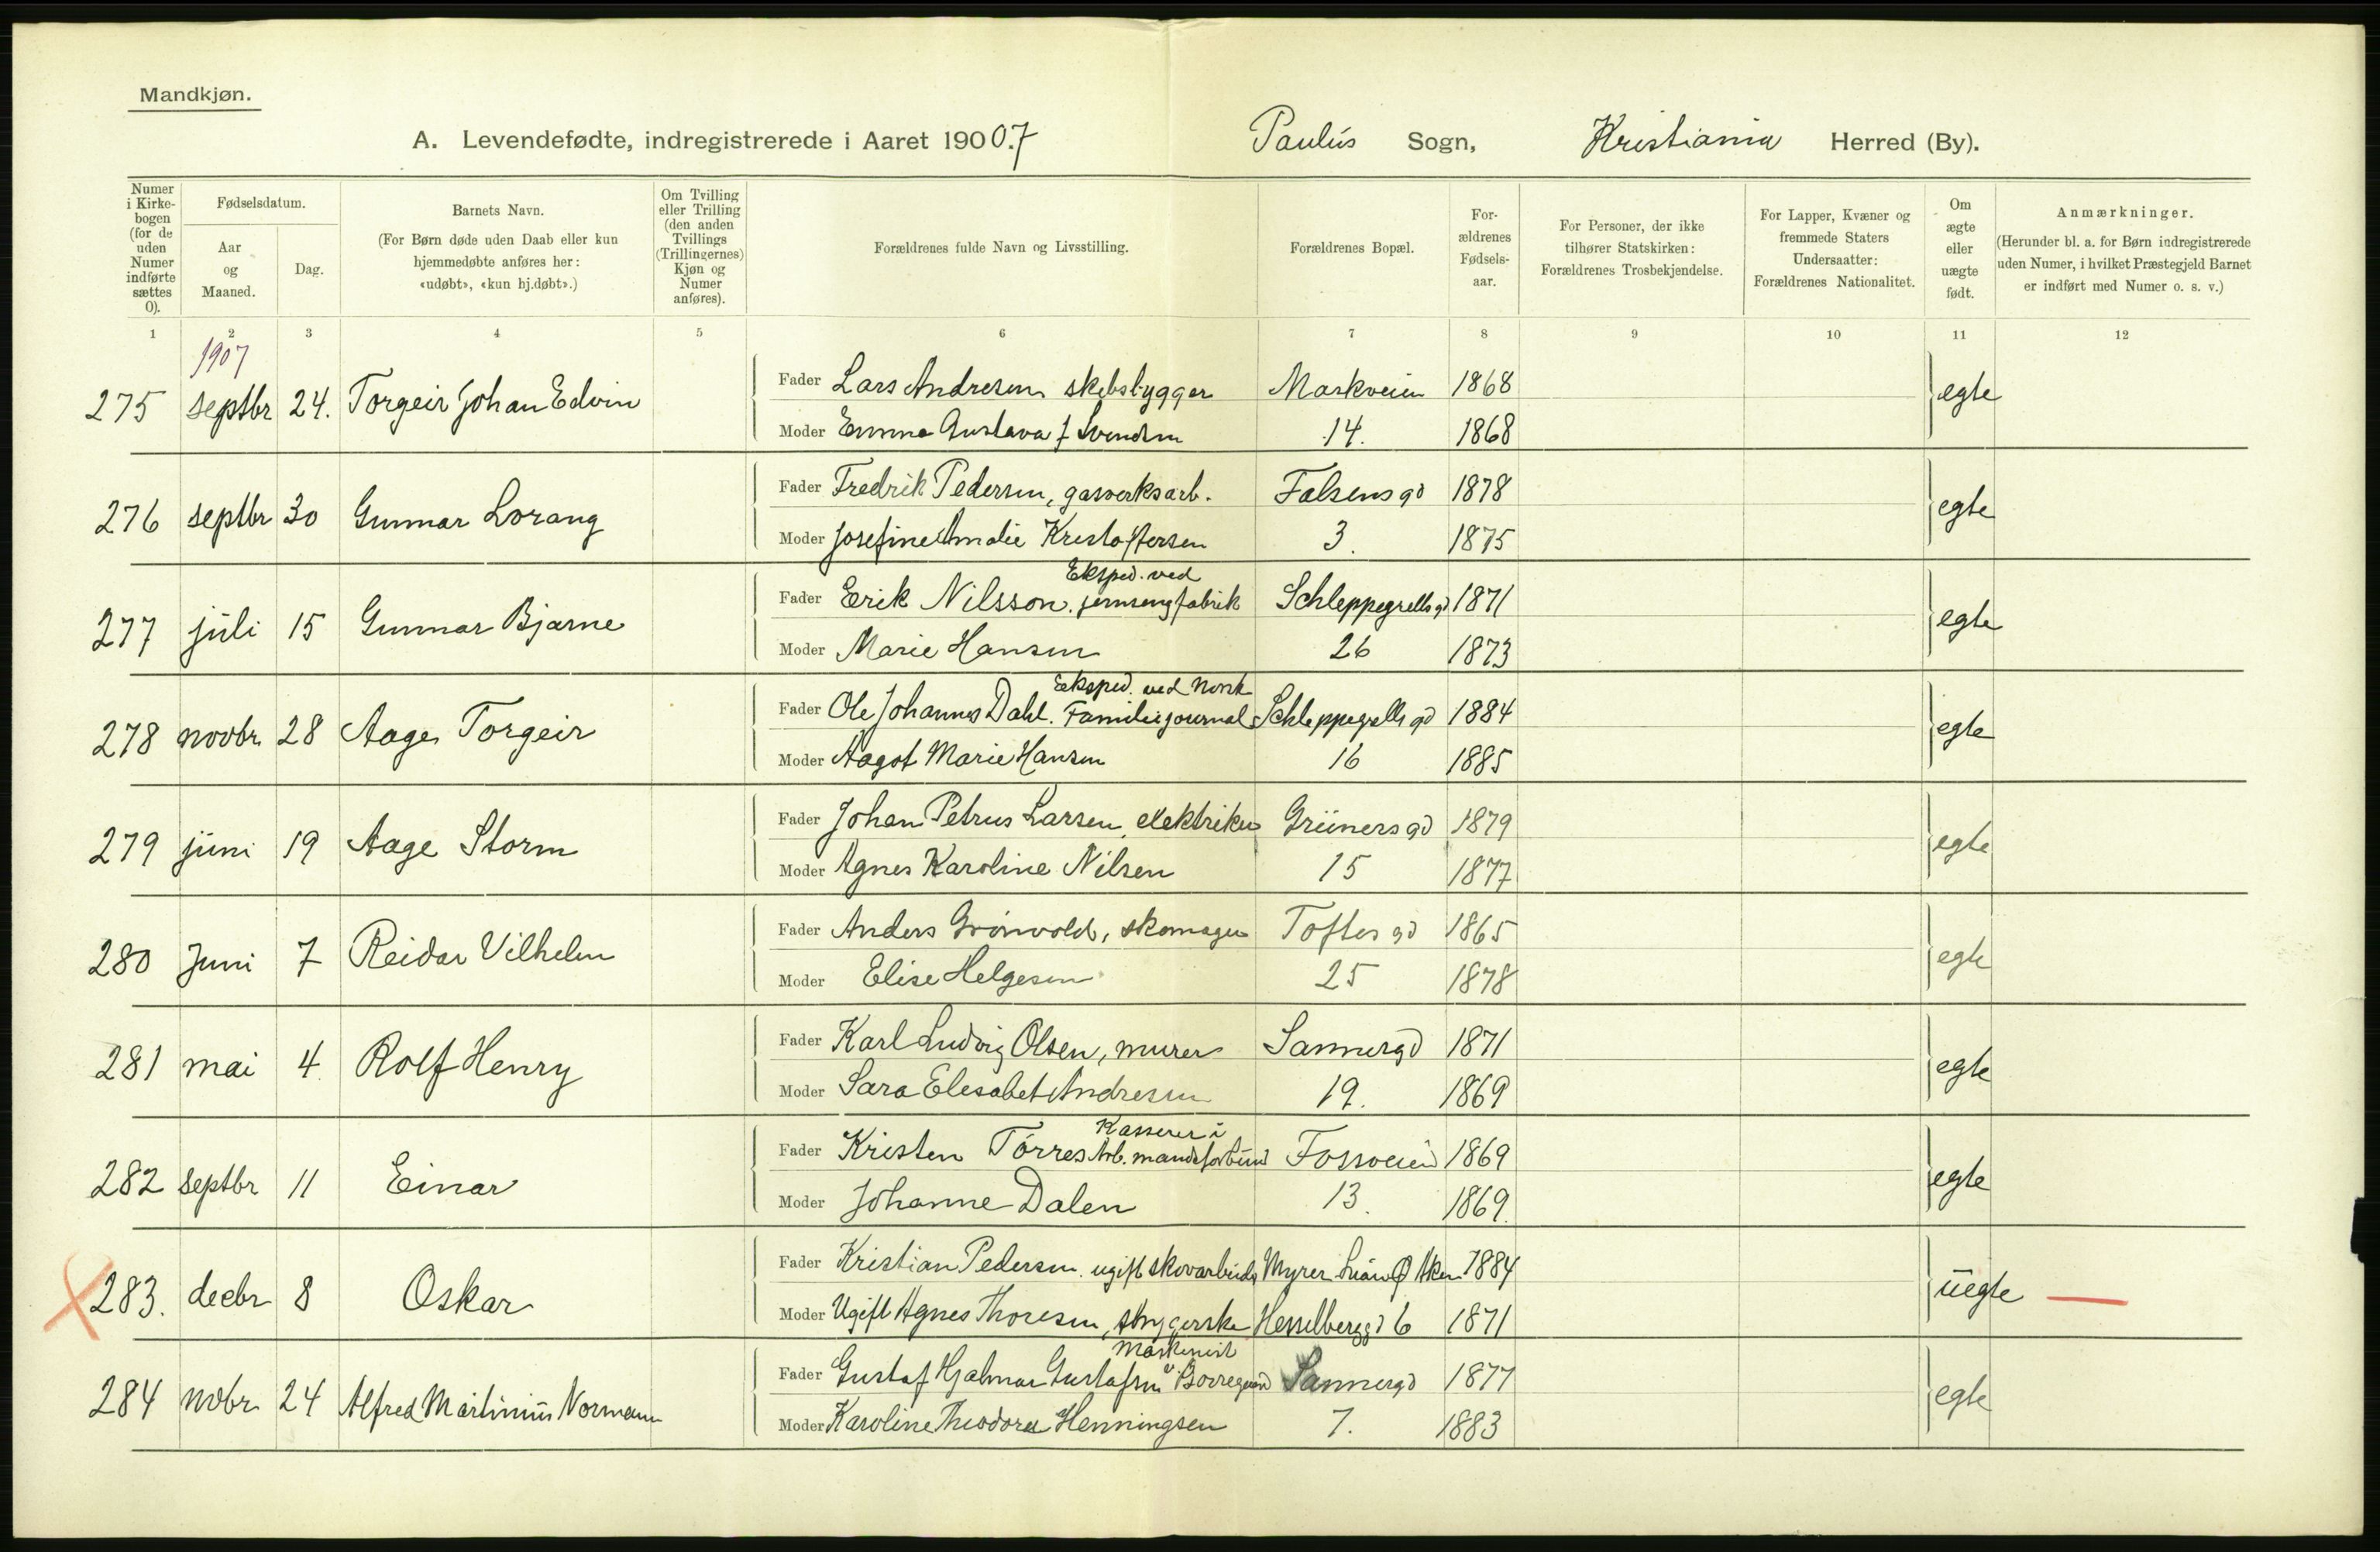 Mandkjøn.
A. Levendefødte, indregistrerede i Aaret 1900.7 Paulus Sogn, Kristiania Herred (By).
Numer i Kirkebogen (for de uden Numer indførte sættes 0).
Fødselsdatum.
Aar og Maaned.
Dag.
Barnets Navn.
(For Børn døde uden Daab eller kun hjemmedøbte anføres her: «udøbt», «kun hj.døbt».)
Om Tvilling eller Trilling (den anden Tvillings (Trillingernes) Kjøn og Numer anføres).
Forældrenes fulde Navn og Livsstilling.
Forældrenes Bopæl.
For-ældrenes Fødsels-aar.
For Personer, der ikke tilhører Statskirken: Forældrenes Trosbekjendelse.
For Lapper, Kvæner og fremmede Staters Undersaatter: Forældrenes Nationalitet.
Om ægte eller uægte født.
Anmærkninger.
(Herunder bl. a. for Børn indregistrerede uden Numer, i hvilket Præstegjeld Barnet er indført med Numer o. s. v.)
1 2 3 4 5 6 7 8 9 10 11 12
1907
275 septbr 24. Torgeir Johan Edvin Fader Lars Andresen skibsbygger Markveien 1868 egte
Moder Emma Gustava f Svendsen 14. 1868
276 septbr 30 Gunnar Lorang Fader Fredrik Pedersen, gasverksarb. Falsens gd 1878 egte
Moder Josefine Amalie Kristoffersen 3. 1875
Eksped. ved
277 juli 15 Gunnar Bjarne Fader Erik Nilsson. jernsengfabrik Schleppegrells gd 1871 egte
Moder Marie Hansen 26 1873
Eksped. ved Norsk
278 novbr 28 Aage Torgeir Fader Ole Johannes Dahl. Familiejournal Schleppegrells gd 1884 egte
Moder Aagot Marie Hansen 16 1885
279 juni 19 Aage Storm Fader Johan Petrus Larsen, elektriker Grüners gd 1879 egte
Moder Agnes Karoline Nilsen 15 1877
280 Juni 7 Reidar Vilhelm Fader Anders Grönvold, skomager Toftes gd 1865 egte
Moder Elise Helgesen 25 1878
281 mai 4 Rolf Henry Fader Karl Ludvig Olsen, murer Sannergd 1871 egte
Moder Sara Elesabet Andresen 19. 1869
Kasserer i
282 septbr 11 Einar Fader Kristen Tórres Arb. mandsforbund Fossveien 1869 egte
Moder Johanne Dalen 13. 1869.
283. decbr 8 Oskar Fader Kristian Pedersen. ugift skovarbeider Myrer Ø Aker 1884 uegte —
Moder Ugift Agnes Thoresen, strygerske Hesselberggd 6 1871
Maskinist
284 novbr 24 Alfred Martinius Normann Fader Gustaf Hjalmar Gustafsen v. Borregaard Sannergd 1877 egte
Moder Karoline Theodora Henningsen 7. 1883